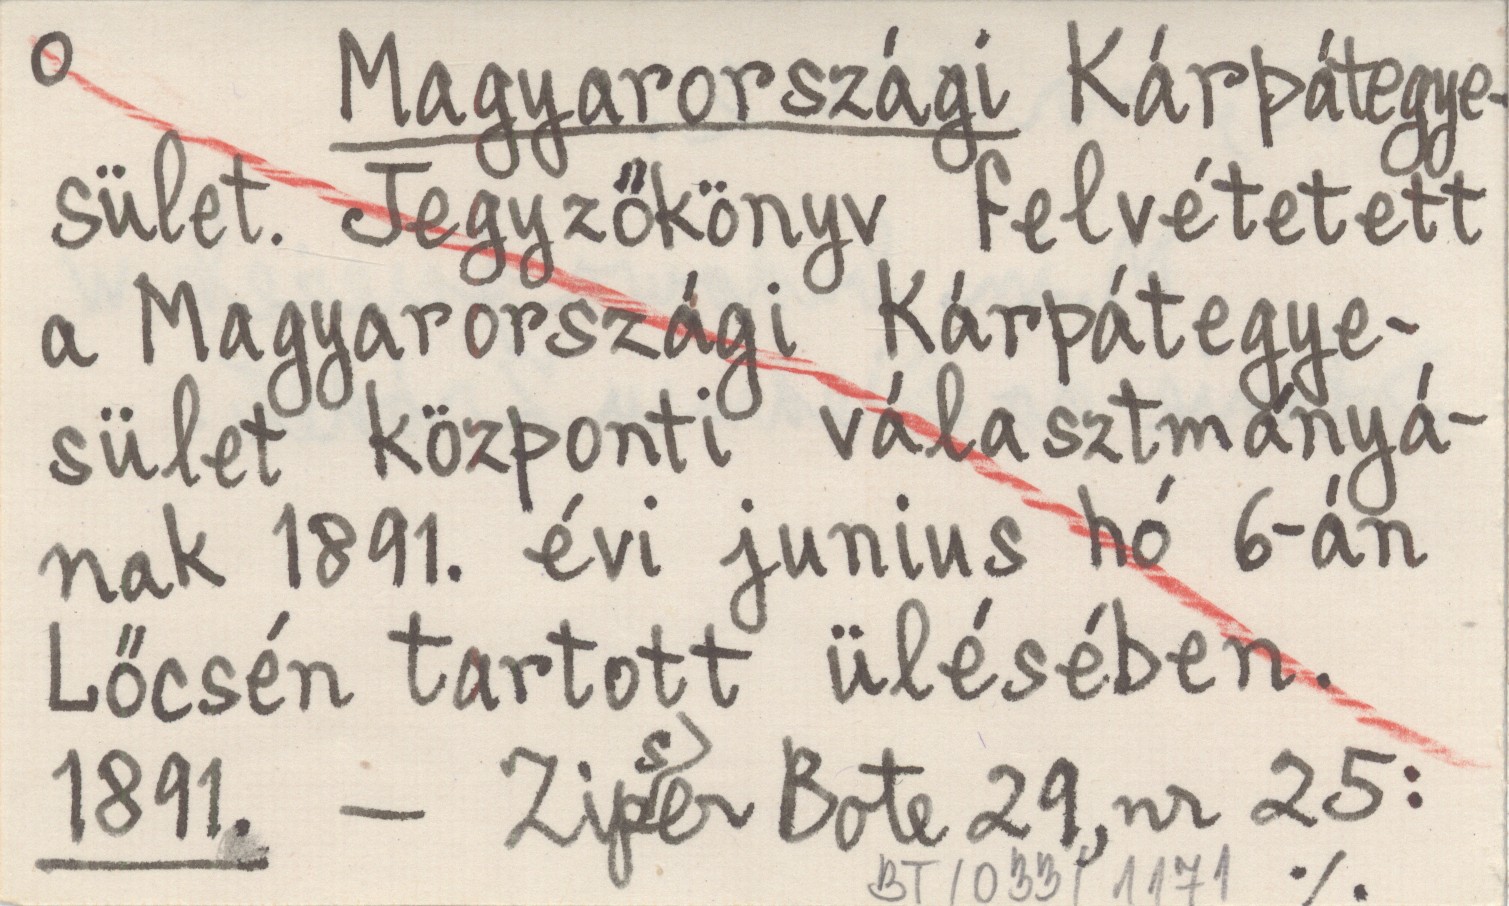 o Magyarországi Kárpátegye-
sület. Jegyzőkönyv felvétetett
a Magyarországi Kárpátegye-
sület központi választmányá-
nak 1891. évi junius hó 6-án
Lőcsén tartott ülésében.
1891. — Zipser Bote 29, nr 25:
BT/033/1171 ./.